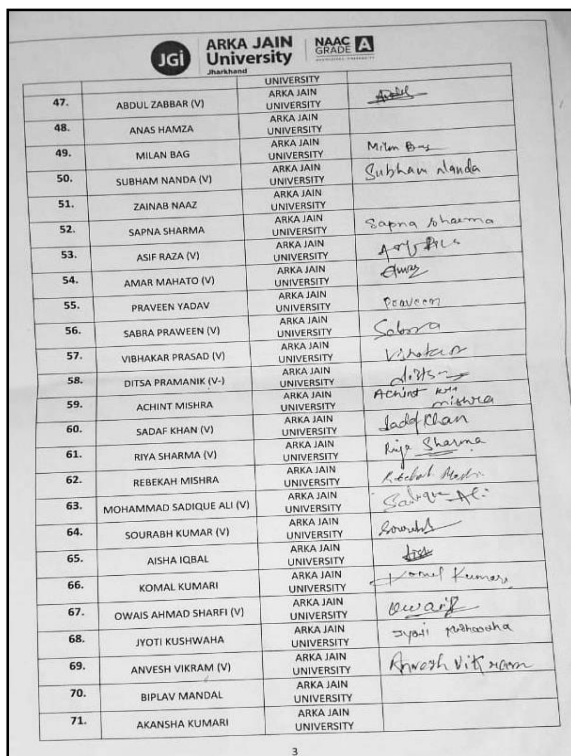 JGi ARKA JAIN University Jharkhand NAAC GRADE A
UNIVERSITY
47. ABDUL ZABBAR (V) ARKA JAIN UNIVERSITY
48. ANAS HAMZA ARKA JAIN UNIVERSITY
49. MILAN BAG ARKA JAIN UNIVERSITY Milan Bag
50. SUBHAM NANDA (V) ARKA JAIN UNIVERSITY Subham Nanda
51. ZAINAB NAAZ ARKA JAIN UNIVERSITY
52. SAPNA SHARMA ARKA JAIN UNIVERSITY Sapna Sharma
53. ASIF RAZA (V) ARKA JAIN UNIVERSITY
54. AMAR MAHATO (V) ARKA JAIN UNIVERSITY
55. PRAVEEN YADAV ARKA JAIN UNIVERSITY Praveen
56. SABRA PRAWEEN (V) ARKA JAIN UNIVERSITY Sabra
57. VIBHAKAR PRASAD (V) ARKA JAIN UNIVERSITY Vibhakar
58. DITSA PRAMANIK (V-) ARKA JAIN UNIVERSITY
59. ACHINT MISHRA ARKA JAIN UNIVERSITY Achint mishra
60. SADAF KHAN (V) ARKA JAIN UNIVERSITY Sadaf Khan
61. RIYA SHARMA (V) ARKA JAIN UNIVERSITY Riya Sharma
62. REBEKAH MISHRA ARKA JAIN UNIVERSITY
63. MOHAMMAD SADIQUE ALI (V) ARKA JAIN UNIVERSITY Sadique Ali
64. SOURABH KUMAR (V) ARKA JAIN UNIVERSITY
65. AISHA IQBAL ARKA JAIN UNIVERSITY
66. KOMAL KUMARI ARKA JAIN UNIVERSITY Komal Kumari
67. OWAIS AHMAD SHARFI (V) ARKA JAIN UNIVERSITY Owais
68. JYOTI KUSHWAHA ARKA JAIN UNIVERSITY Jyoti
69. ANVESH VIKRAM (V) ARKA JAIN UNIVERSITY Anvesh Vikram
70. BIPLAV MANDAL ARKA JAIN UNIVERSITY
71. AKANSHA KUMARI ARKA JAIN UNIVERSITY
3